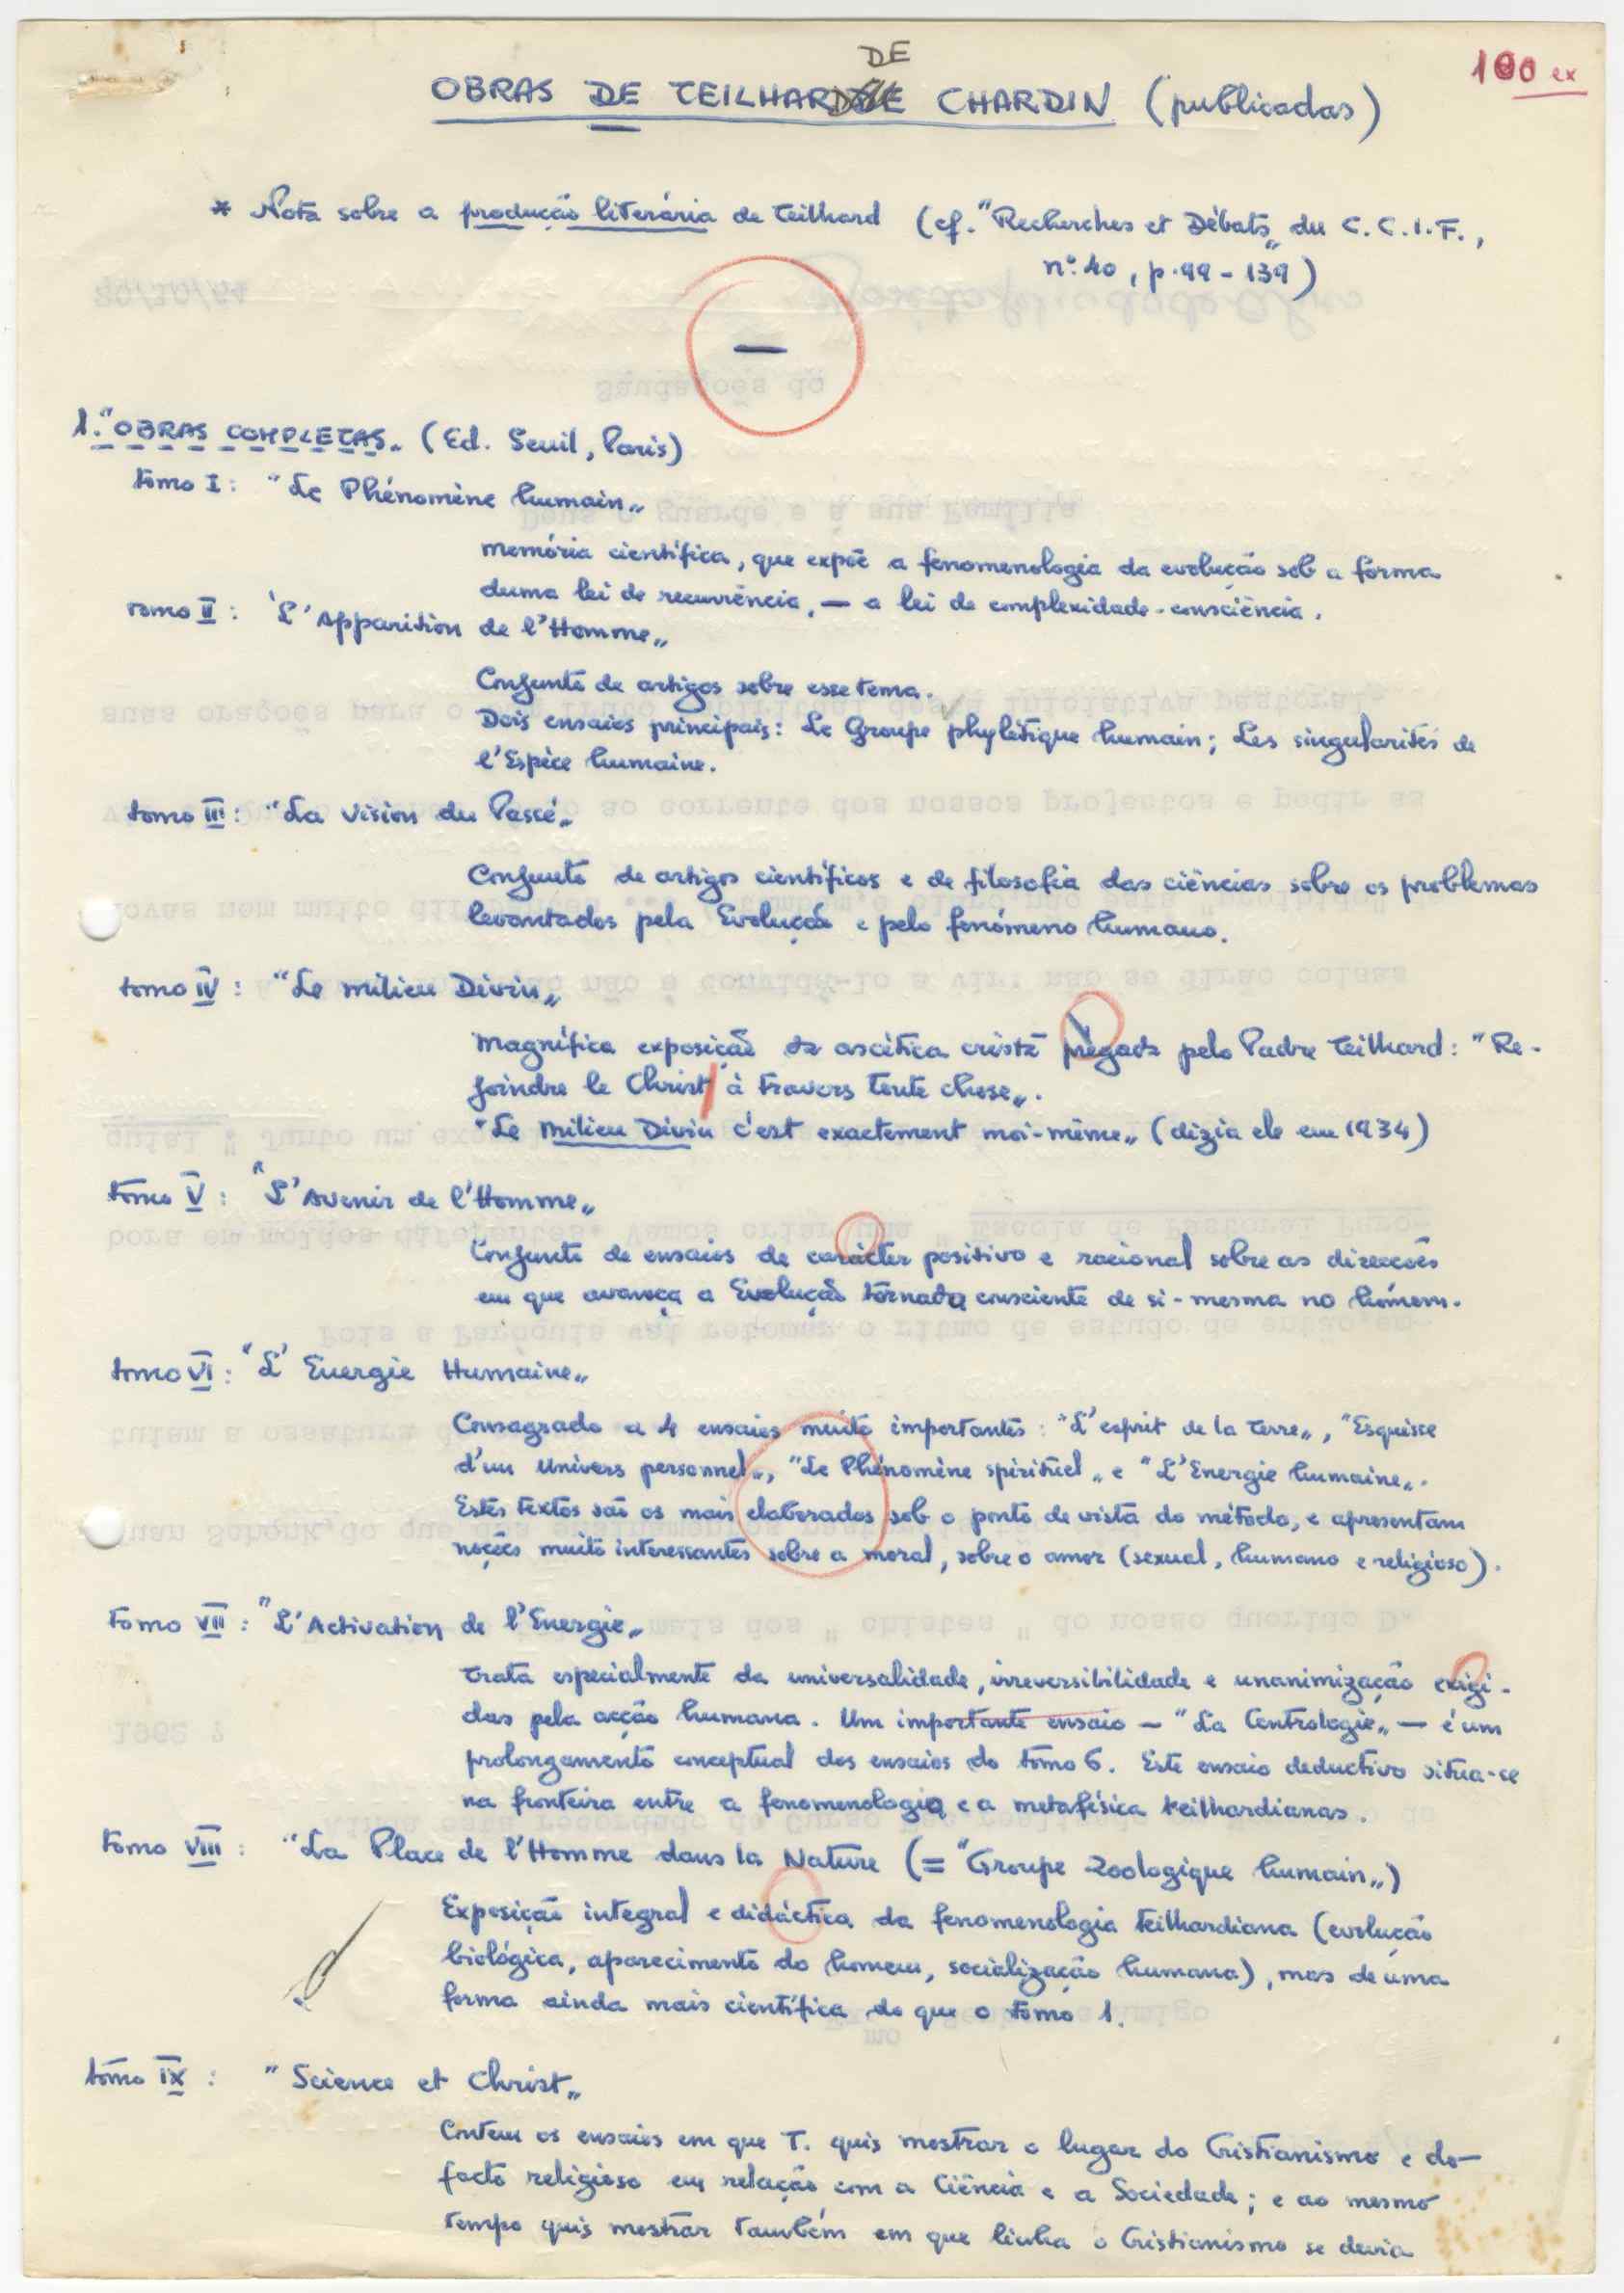 100 ex
OBRAS DE TEILHARD DE CHARDIN (publicadas)
* Nota sobre a produção literária de Teilhard (cf. "Recherches et Débats„ du C.C.I.F.,
nº 40, p. 99-139)
—
1.º OBRAS COMPLETAS. (Ed. Seuil, Paris)
tomo I: "Le Phénomène humain„
memória científica, que expõe a fenomenologia da evolução sob a forma
duma lei de recurrência, — a lei de complexidade-consciência.
tomo II: "L'Apparition de l'Homme„
Conjunto de artigos sobre esse tema.
Dois ensaios principais: Le Groupe phylétique humain; Les singularités de
l'Espèce humaine.
tomo III: "La Vision du Passé„
Conjunto de artigos científicos e de filosofia das ciências sobre os problemas
levantados pela Evolução e pelo fenómeno humano.
tomo IV: "Le Milieu Divin„
Magnífica exposição da ascética cristã prègada pelo Padre Teilhard: "Re-
joindre le Christ à travers toute chose„.
"Le Milieu Divin c'est exactement moi-même„ (dizia ele em 1934)
tomo V: "L'Avenir de l'Homme„
Conjunto de ensaios de carácter positivo e racional sobre as direcções
em que avança a Evolução tornada consciente de si-mesma no homem.
tomo VI: "L'Energie Humaine„
Consagrado a 4 ensaios muito importantes: "L'esprit de la Terre„, "Esquisse
d'un Univers personnel„, "Le Phénomène spirituel„ e "L'Energie humaine„.
Estes textos são os mais elaborados sob o ponto de vista do método, e apresentam
noções muito interessantes sobre a moral, sobre o amor (sexual, humano e religioso).
Tomo VII: "L'Activation de l'Energie„
Trata especialmente da universalidade, irreversibilidade e unanimização exigi-
das pela acção humana. Um importante ensaio — "La Centrologie„ — é um
prolongamento conceptual dos ensaios do tomo 6. Este ensaio deductivo situa-se
na fronteira entre a fenomenologia e a metafísica teilhardianas.
Tomo VIII: "La Place de l'Homme dans la Nature (= "Groupe Zoologique humain„)
Exposição integral e didáctica da fenomenologia teilhardiana (evolução
biológica, aparecimento do homem, socialização humana), mas de uma
forma ainda mais científica do que o tomo 1.
tomo IX: "Science et Christ„
Contem os ensaios em que T. quis mostrar o lugar do Cristianismo e do
facto religioso em relação com a Ciência e a Sociedade; e ao mesmo
tempo quis mostrar também em que linha o Cristianismo se devia